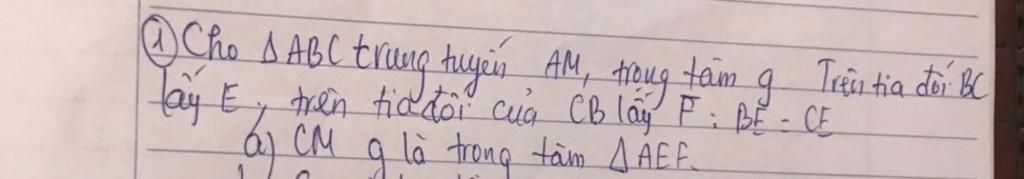 ① Cho ΔABC trung tuyến AM, trọng tâm g. Trên tia đối BC
lấy E, trên tia đối của CB lấy F : BE = CE
a) CM g là trọng tâm ΔAEF.